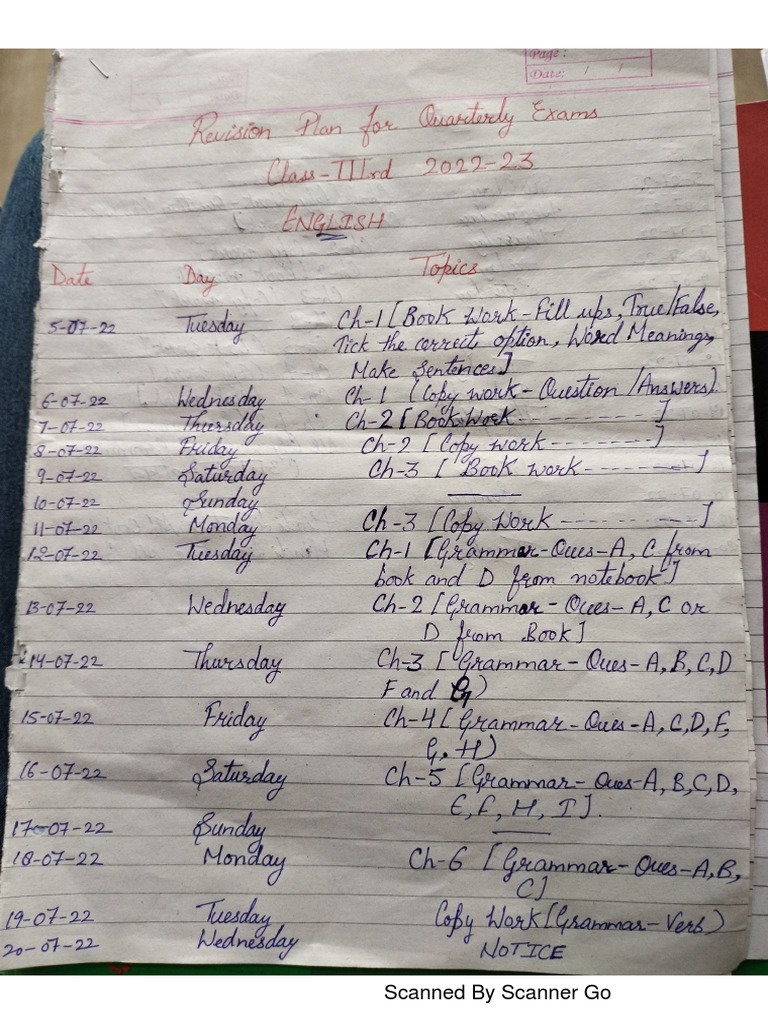 Page:
Date: / /
Revision Plan for Quarterly Exams
Class-IIIrd 2022-23
ENGLISH
Date Day Topics
5-07-22 Tuesday Ch-1 [Book Work-Fill ups, True/False,
Tick the correct option, Word Meanings,
Make Sentences]
6-07-22 Wednesday Ch-1 (Copy work-Question/Answers)
7-07-22 Thursday Ch-2 [Book Work ----------]
8-07-22 Friday Ch-2 [Copy work --------]
9-07-22 Saturday Ch-3 [Book work --------]
10-07-22 Sunday ———
11-07-22 Monday Ch-3 [Copy Work ----------]
12-07-22 Tuesday Ch-1 [Grammar-Ques-A, C from
book and D from notebook]
13-07-22 Wednesday Ch-2 [Grammar-Ques-A, C or
D from Book]
14-07-22 Thursday Ch-3 [Grammar-Ques-A, B, C, D
F and G)
15-07-22 Friday Ch-4 [Grammar-Ques-A, C, D, F,
G, H)
16-07-22 Saturday Ch-5 [Grammar-Ques-A, B, C, D,
E, F, H, I].
17-07-22 Sunday ———
18-07-22 Monday Ch-6 [Grammar-Ques-A, B,
C]
19-07-22 Tuesday Copy Work [Grammar-Verb)
20-07-22 Wednesday NOTICE
Scanned By Scanner Go